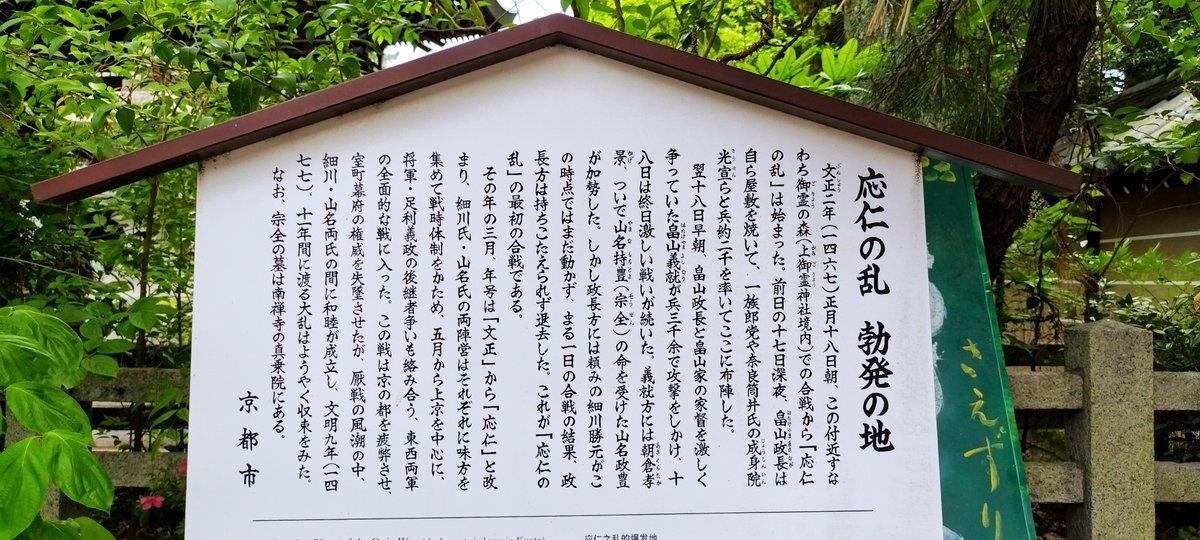 応仁の乱 勃発の地
文正二年(一四六七)正月十八日朝、この付近すな
わち御霊の森(上御霊神社境内)での合戦から「応仁
の乱」は始まった。前日の十七日深夜、畠山政長は
自ら屋敷を焼いて、一族郎党や奈良筒井氏の成身院
光宣らと兵約二千を率いてここに布陣した。
翌十八日早朝、畠山政長と畠山家の家督を激しく
争っていた畠山義就が兵三千余で攻撃をしかけ、十
八日は終日激しい戦いが続いた。義就方には朝倉孝
景、ついで山名持豊(宗全)の命を受けた山名政豊
が加勢した。しかし政長方には頼みの細川勝元がこ
の時点ではまだ動かず、まる一日の合戦の結果、政
長方は持ちこたえられず退去した。これが「応仁の
乱」の最初の合戦である。
その年の三月、年号は「文正」から「応仁」と改
まり、細川氏・山名氏の両陣営はそれぞれに味方を
集めて戦時体制をかため、五月から上京を中心に、
将軍・足利義政の後継者争いも絡み合う、東西両軍
の全面的な戦に入った。この戦は京の都を疲弊させ、
室町幕府の権威を失墜させたが、厭戦の風潮の中、
細川・山名両氏の間に和睦が成立し、文明九年(一四
七七)、十年間に渡る大乱はようやく収束をみた。
なお、宗全の墓は南禅寺の真乗院にある。
京都市
応仁之乱的爆发地
さえずり